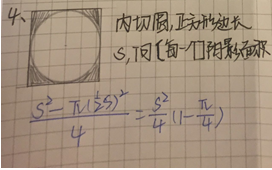 4、 内切圆,正方形边长
S,问[每一个]阴影面积
\frac{S^2-\pi(\frac{1}{2}S)^2}{4}=\frac{S^2}{4}(1-\frac{\pi}{4})